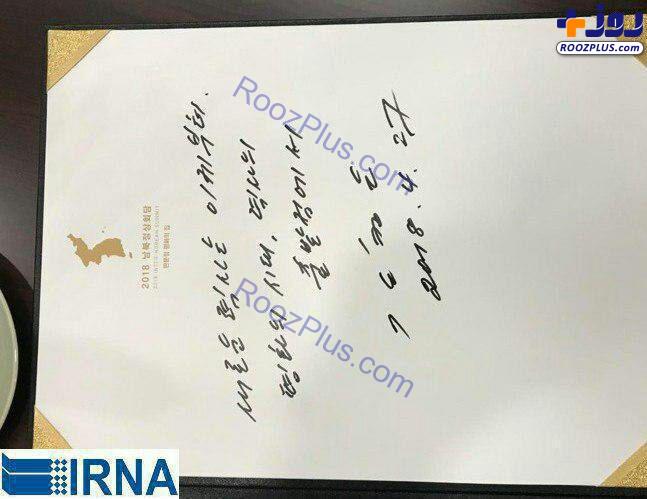 روز
ROOZPLUS.com
2018 남북정상회담
2018 INTER-KOREAN SUMMIT
판문점 평화의 집
새로운 력사는 이제부터.
평화의 시대, 력사의
출발점에서
김정은
2018. 4. 27
RoozPlus.com
RoozPlus.com
RoozPlus.com
IRNA